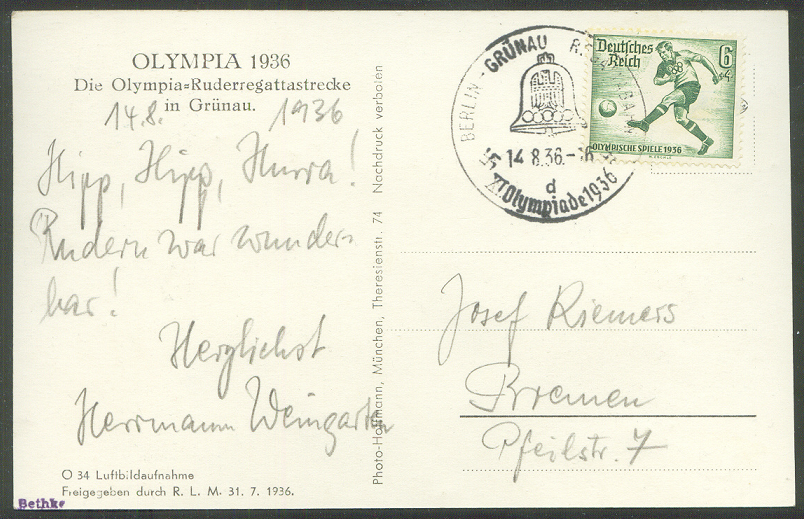 OLYMPIA 1936
Die Olympia=Ruderregattastrecke
in Grünau.
14.8. 1936
Hipp, Hipp, Hurra!
Rudern war wunder-
bar!
Herzlichst
Herrmann Weingarten
O 34 Luftbildaufnahme
Freigegeben durch R. L. M. 31. 7. 1936.
Bethke
Photo-Hoffmann, München, Theresienstr. 74 Nachdruck verboten
BERLIN-GRÜNAU
14.8.36.-16
d
XI.Olympiade1936
Deutsches
Reich
6
+4
OLYMPISCHE SPIELE 1936
Josef Riemers
Bremen
Pfeilstr. 7